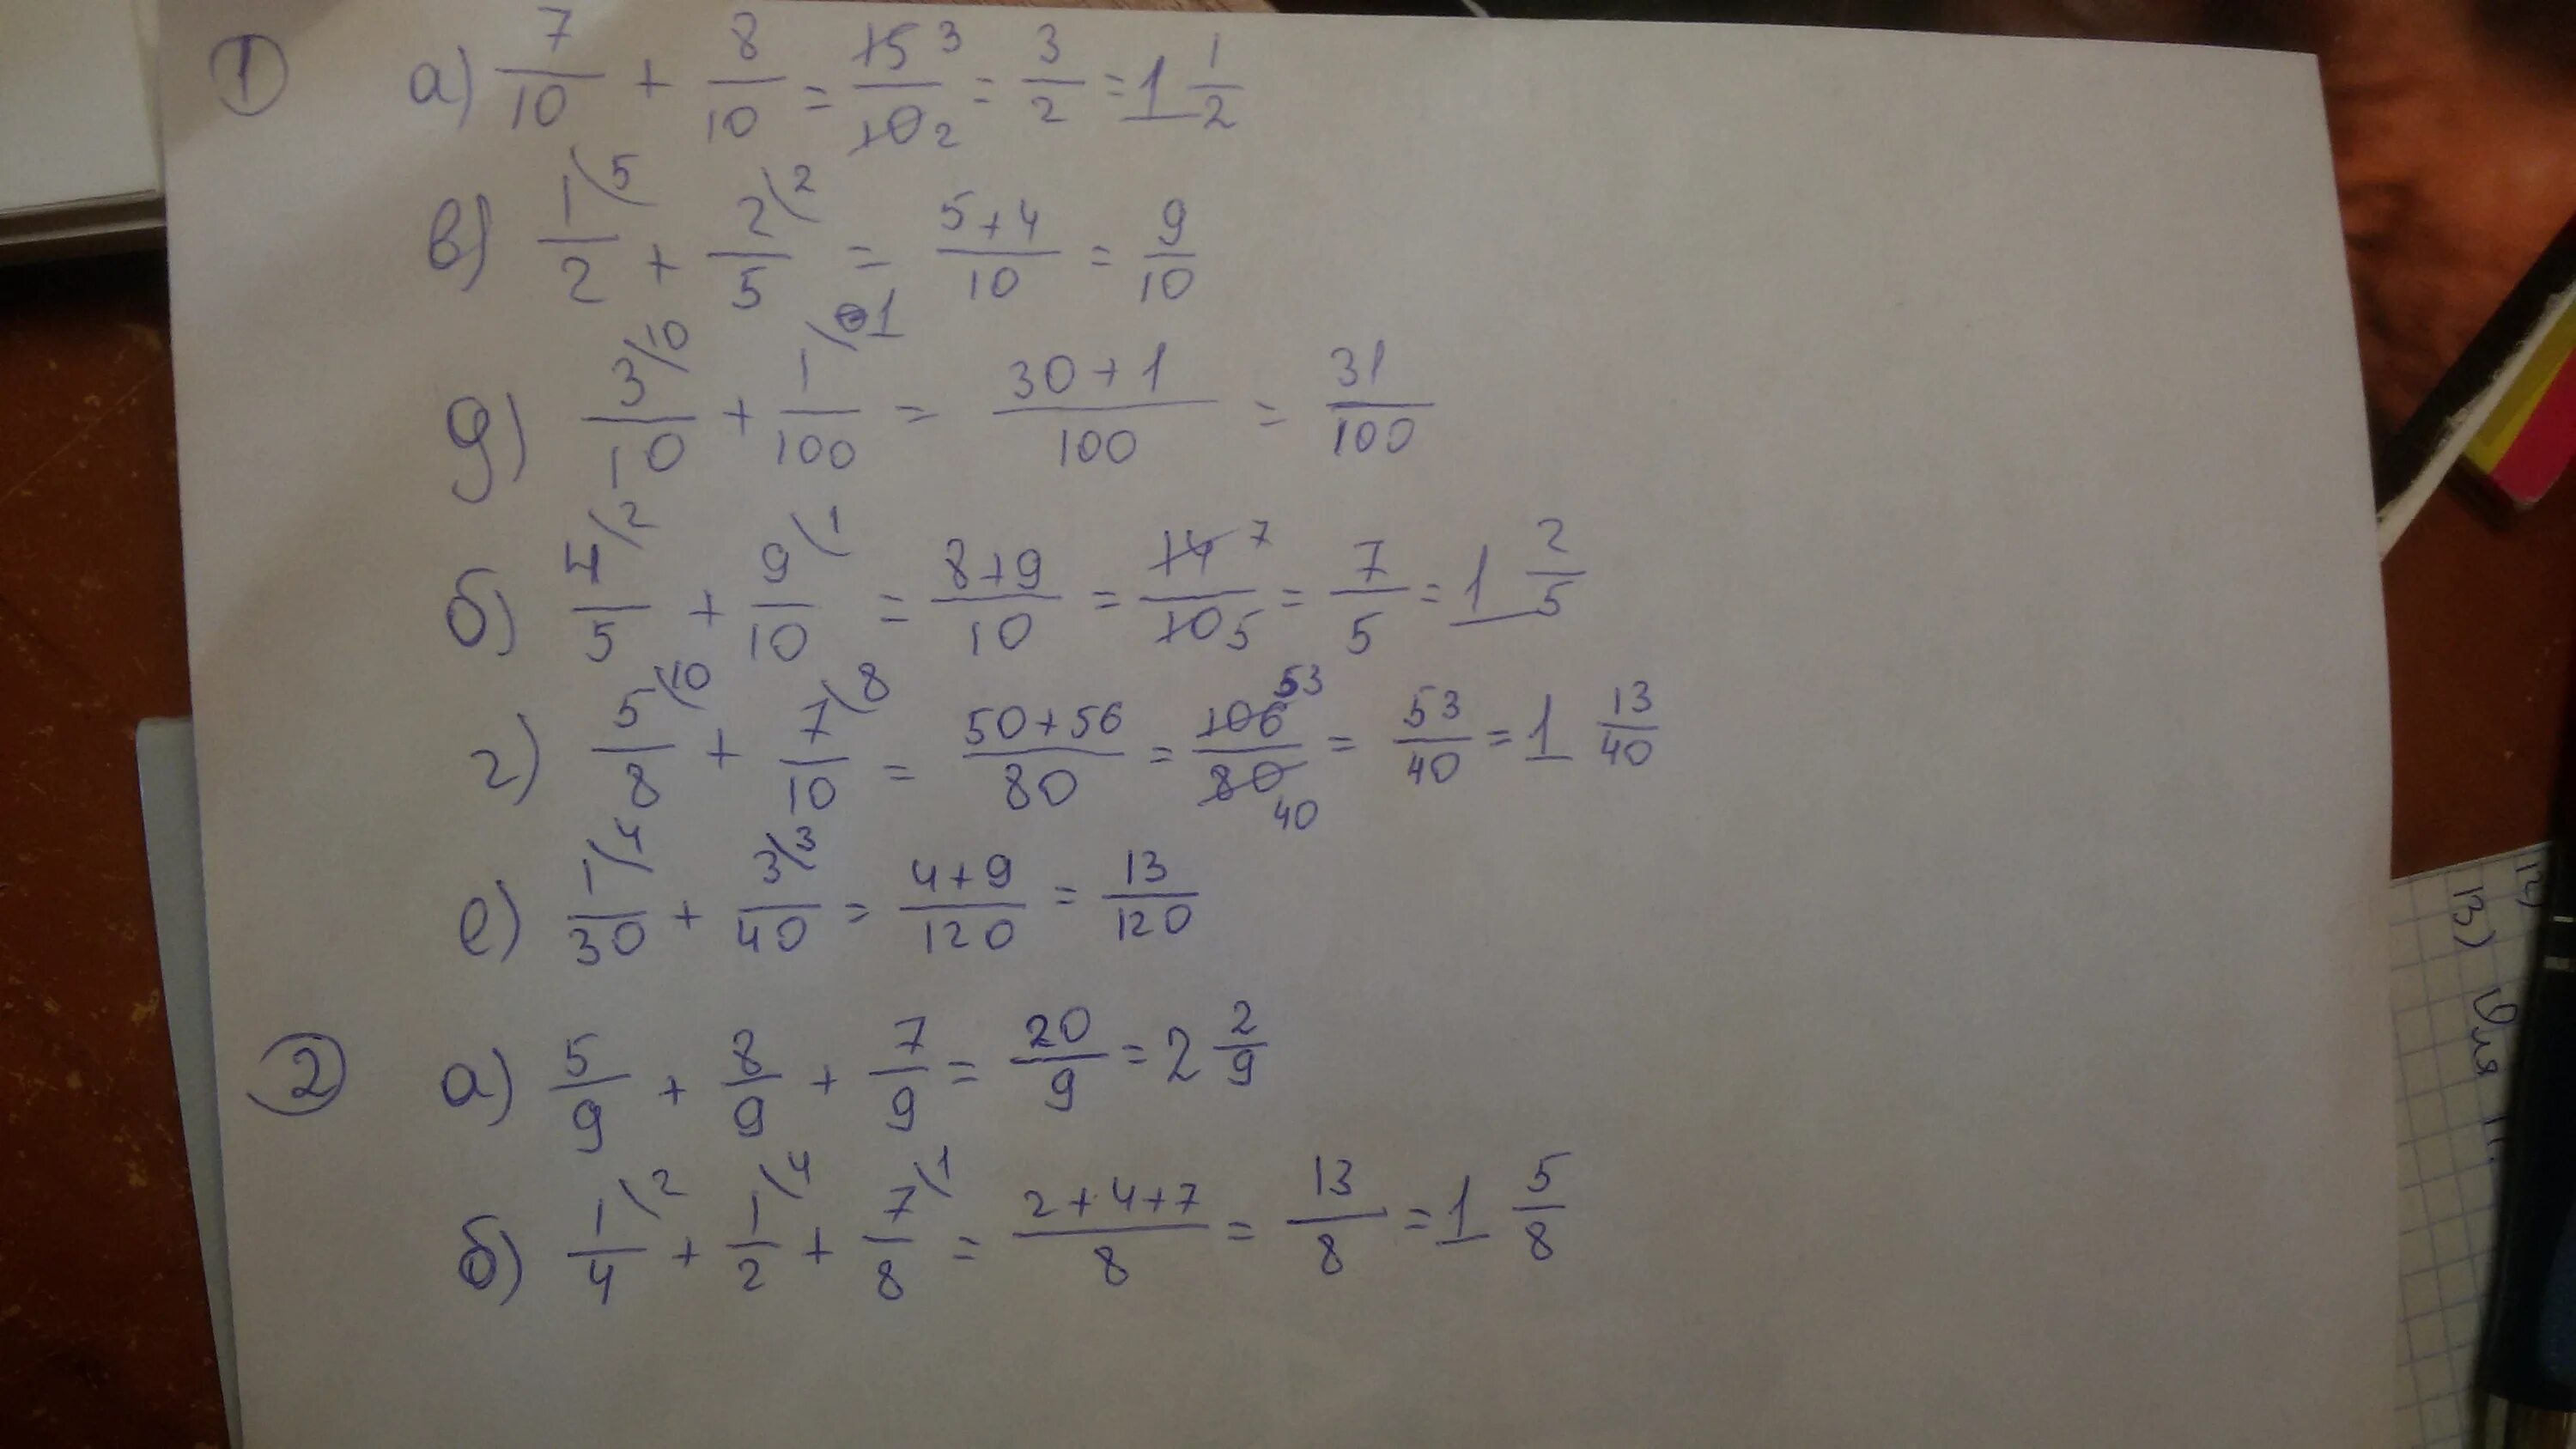 ① а) 7/10 + 8/10 = 15³/10₂ = 3/2 = 1 1/2
в) 1\5/2 + 2\2/5 = 5+4/10 = 9/10
д) 3\10/10 + 1\1/100 = 30+1/100 = 31/100
б) 4\2/5 + 9\1/10 = 8+9/10 = 14⁷/10₅ = 7/5 = 1 2/5
г) 5\10/8 + 7\8/10 = 50+56/80 = 106⁵³/80₄₀ = 53/40 = 1 13/40
е) 1\4/30 + 3\3/40 = 4+9/120 = 13/120
② а) 5/9 + 8/9 + 7/9 = 20/9 = 2 2/9
б) 1\2/4 + 1\4/2 + 7\1/8 = 2+4+7/8 = 13/8 = 1 5/8
13)